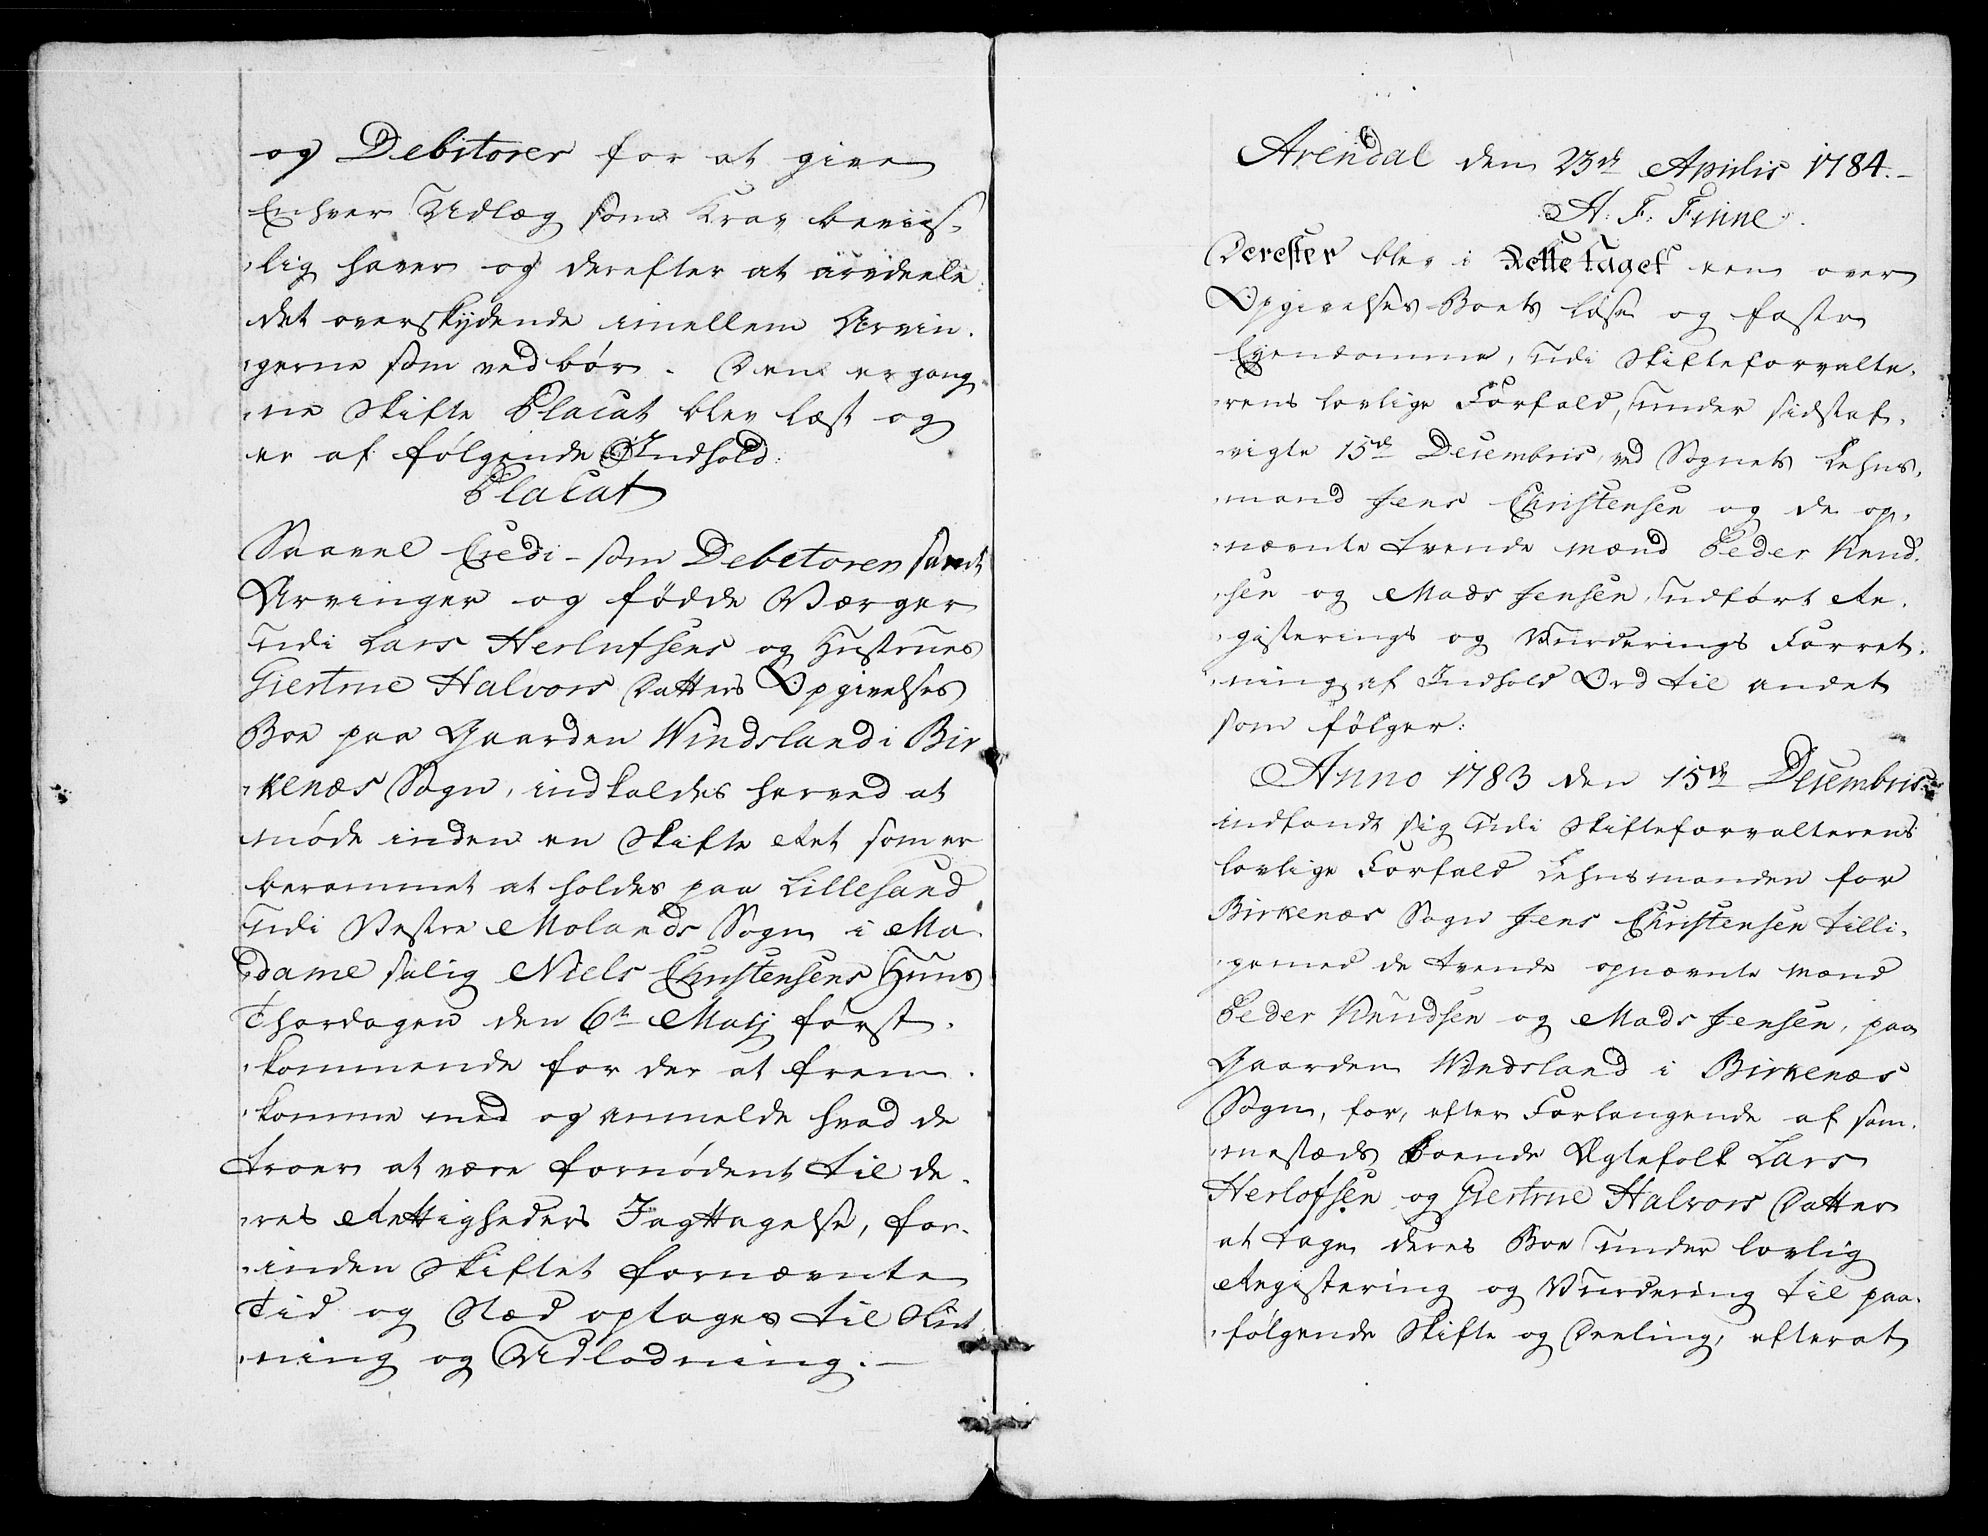 og Debitorer for at give
Enhver Udlæg som Krav beviis-
lig haver og derefter at arvdeele
det overskydende imellem Arvin-
gerne som vedbør. Den ergang-
ne Skifte Placat blev læst og
er af følgende Indhold:
Placat
Saavel Credi- som Debitoren samt
Arvinger og fødde Værger
udi Lars Herlufsens og Hustrues
Giertrue Halvors Datters Opgivelses
Boe paa Gaarden Windsland i Bir
kenæs Sogn, indkaldes herved at
møde inden en Skifte Ret som er
berammet at holdes paa Lillesand
udi Vestre Molands Sogn i Ma-
dame salig Niels Christensens Huus
Thordagen den 6te Maij først-
kommende for der at frem-
komme med og anmelde hvad de
troer at være fornødent til de-
res Rettigheders Jagttagelse, for-
inden Skiftet fornævnte
Tid og Stæd optages til Slut
ning og Udlodning.-
Arendal den 23de Aprilis 1784.-
A: F: Finne.
Derefter blev i Rette taget een over
Opgivelses Boets løse og faste
Eyendomme, udi Skifteforvalte-
rens lovlige Forfald, under sidstaf-
vigte 15de Decembris, ved Sognets Lehns-
mand Jens Christensen og de op-
nævnte tvende Mænd Peder Knud-
sen og Mads Jensen, udført Re-
gisterings og Vurderings Forret-
ning af Indhold Ord til andet
som følger:
Anno 1783 den 15de Decembris
indfandt sig udi Skifteforvalterens
lovlige Forfald Lehnsmanden for
Birkenæs Sogn Jens Christensen tilli-
gemed de tvende opnævnte Mænd
Peder Knudsen og Mads Jensen, paa
Gaarden Windsland i Birkenæs
Sogn, for, efter Forlangende af sam-
mestæds boende Ægtefolk Lars
Herlofsen og Giertrue Halvors Datter
at tage deres Boe under lovlig
Registering og Vurdering til paa-
følgende Skifte og Deeling, efterat